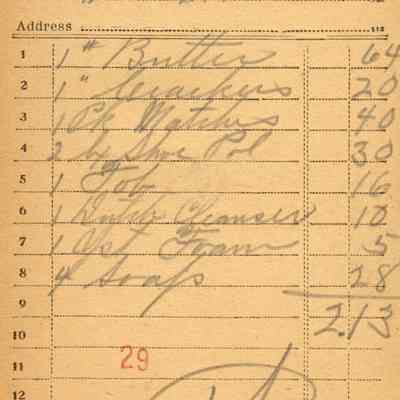 Address
1 1 # Butter 64
2 1 " Crackers 20
3 1 Pk Matches 40
4 2 Shoe Pol 30
5 1 Tob 16
6 1 Dutch Cleanser 10
7 1 Yst Foam 5
8 4 Soaps 28
9 2.13
10
11 29
12